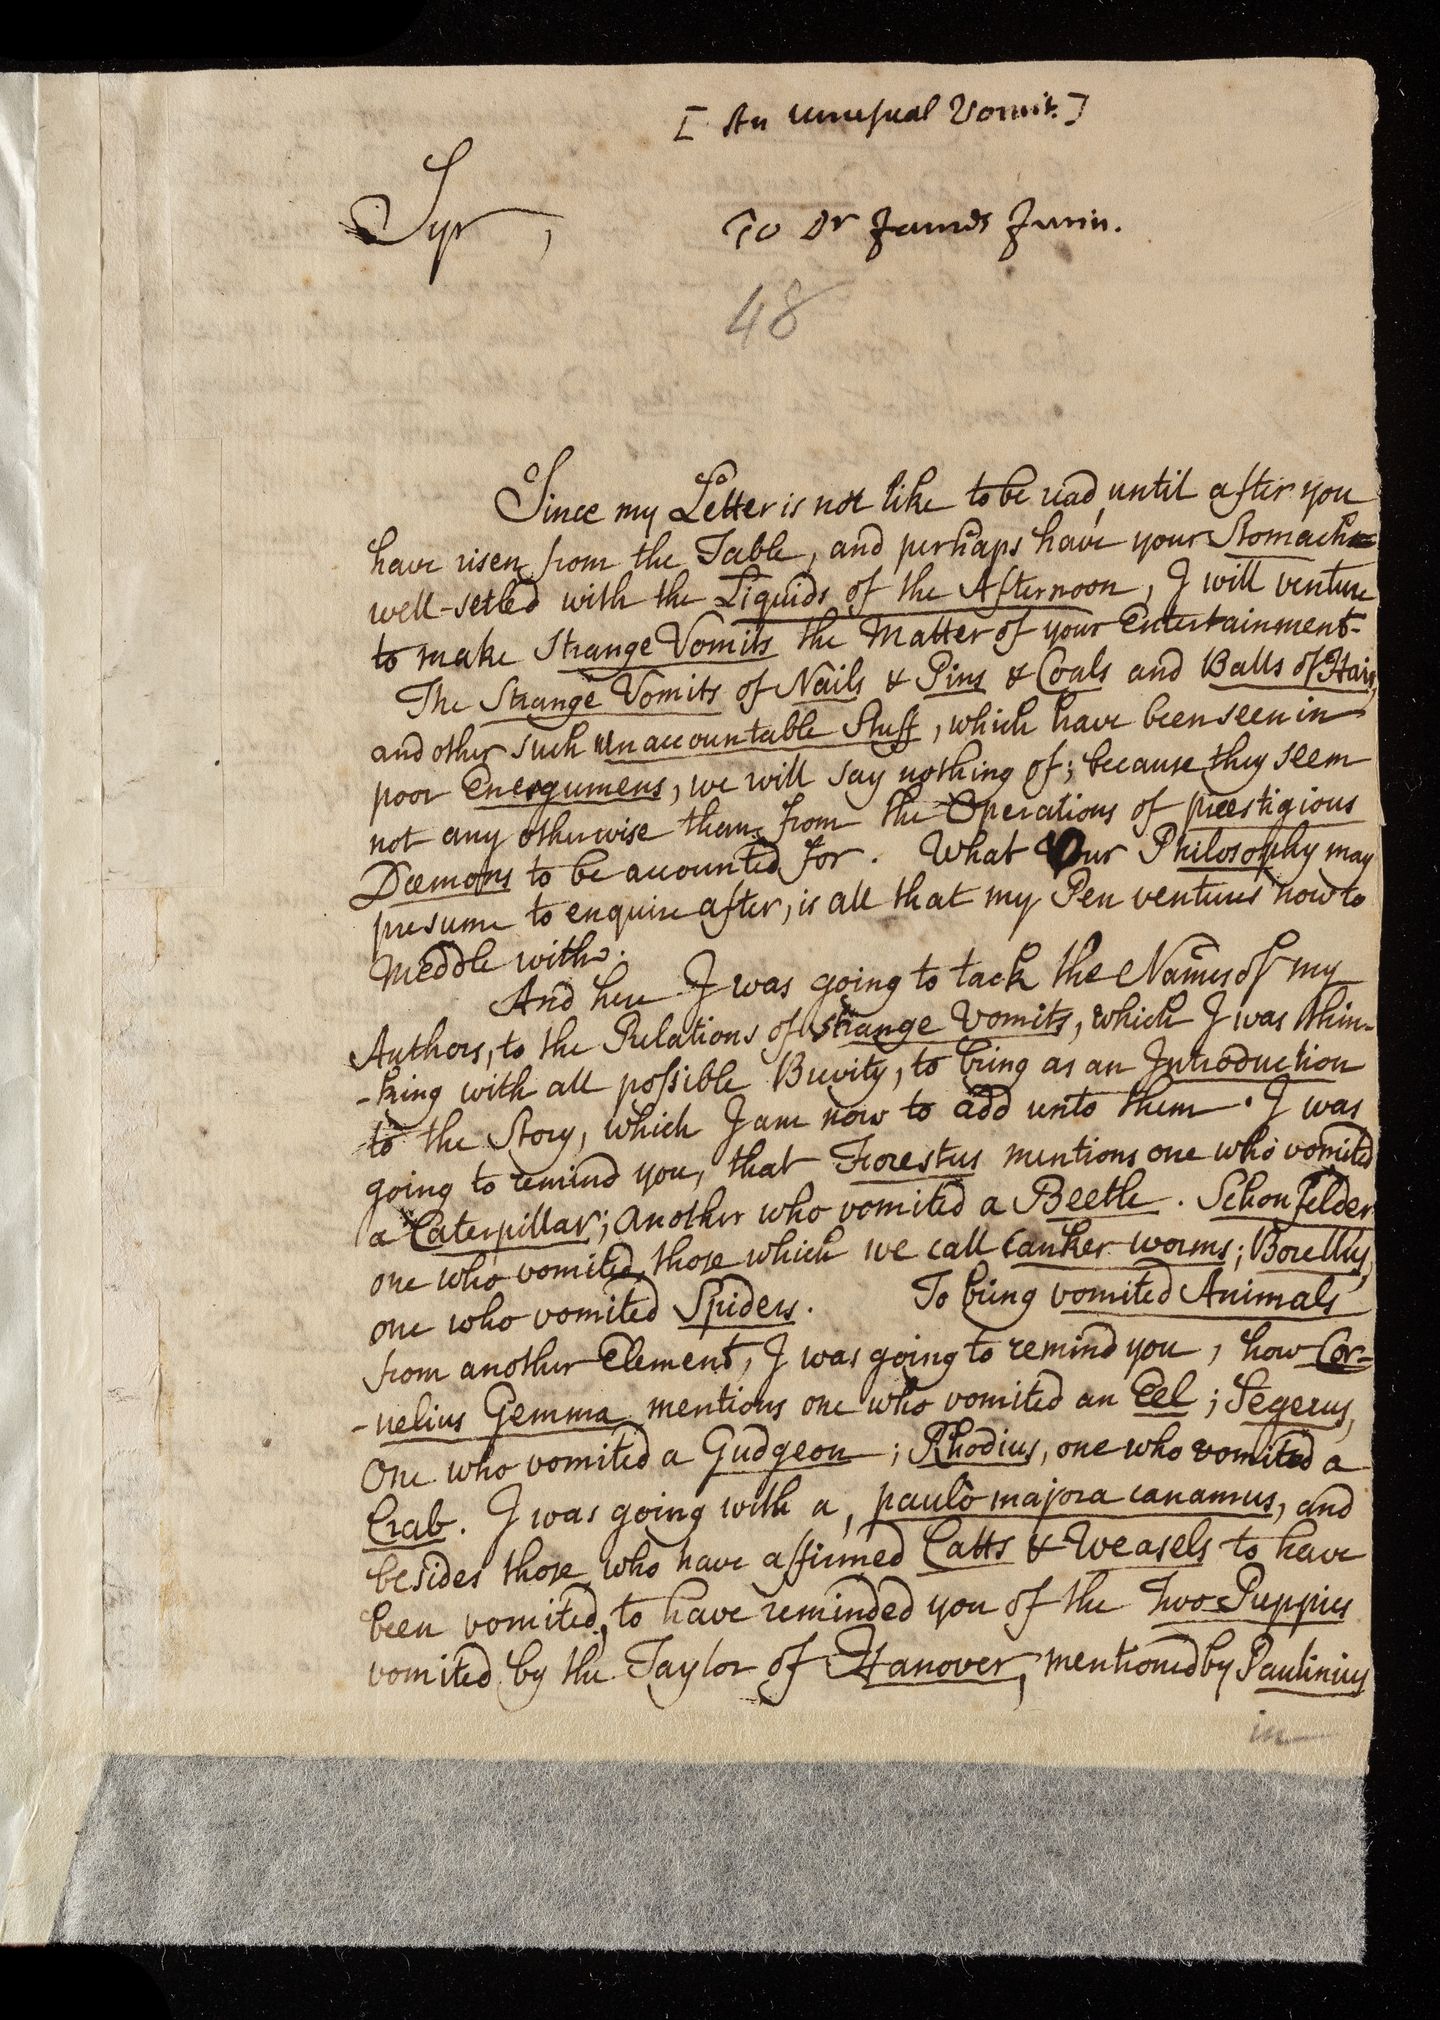 [ An Unusual Vomit. ]
Syr,
To Dr James Jurin.
48
Since my Letter is not like to be read, until after you
have risen from the Table, and perhaps have your Stomachs
well-setled with the Liquids of the Afternoon, I will venture
to make Strange Vomits the Matter of your Entertainment.
The Strange Vomits of Nails & Pins & Coals and Balls of Hair,
and other such Unaccountable Stuff, which have been seen in
poor Energumens, we will say nothing of; because they seem
not any otherwise than from the Operations of præstigious
Dæmons to be accounted for. What Our Philosophy may
presume to enquire after, is all that my Pen ventures now to
Meddle with.
And here I was going to tack the Names of my
Authors, to the Relations of strange Vomits, which I was thin-
-king with all possible Brevity, to bring as an Introduction
to the Story, which I am now to add unto them. I was
going to remind you, that Forestus mentions one who vomited
a Caterpillar; Another who vomited a Beetle. Schonfelder
one who vomited, those which we call Canker worms; Borellus,
one who vomited Spiders. To bring vomited Animals
from another Element, I was going to remind you, how Cor-
-nelius Gemma mentions one who vomited an Eel; Segerus,
One who vomited a Gudgeon; Rhodius, one who vomited a
Crab. I was going with a, paulo majora canamus, and
besides those who have affirmed Catts & Weasels to have
been vomited, to have reminded you of the Two Puppies
vomited by the Taylor of Hanover, mentioned by Paulinius
in